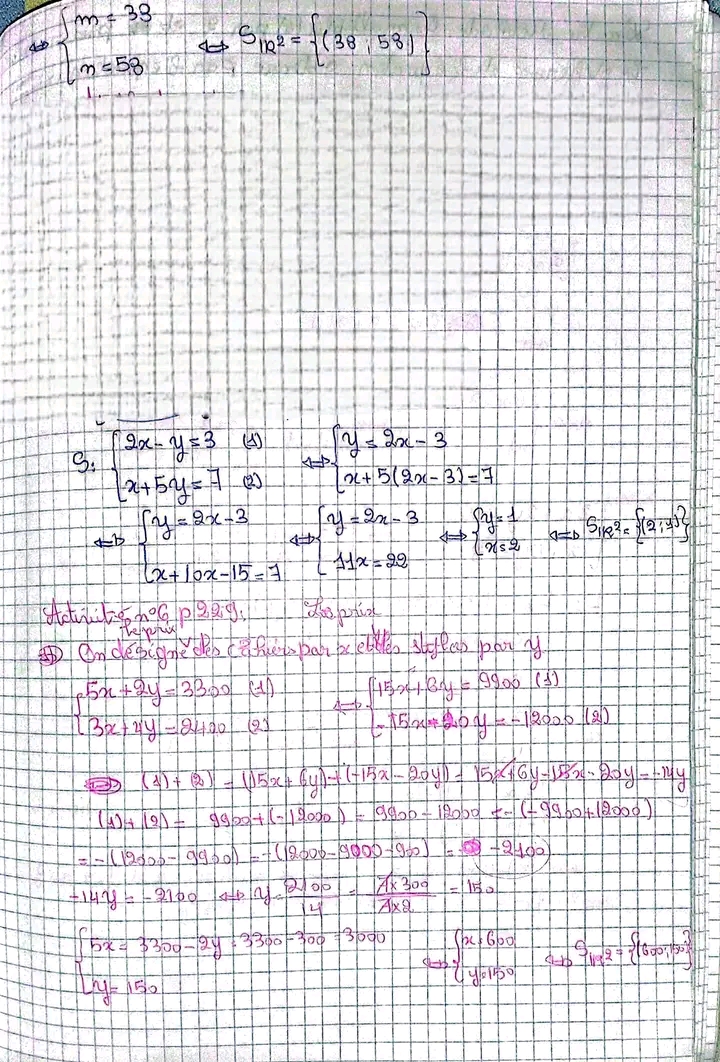 ⇔ { m = 38
{ n = 58 ⇔ S_IR² = {(38 ; 58)}
S: { 2x - y = 3 (1) ⇔ { y = 2x - 3
{ x + 5y = 7 (2) { x + 5(2x - 3) = 7
⇔ { y = 2x - 3 ⇔ { y = 2x - 3 ⇔ { y = 1 ⇔ S_IR² = {(2 ; 1)}
{ x + 10x - 15 = 7 { 11x = 22 { x = 2
Activité n°6 p 229: Le prix
le prix
On désigne des cahiers par x et les stylos par y
{ 5x + 2y = 3300 (1) ⇔ { 15x + 6y = 9900 (1)
{ 3x + 4y = 2400 (2) { -15x - 20y = -12000 (2)
(1) + (2) = (15x + 6y) + (-15x - 20y) = 15x + 6y - 15x - 20y = -14y
(1) + (2) = 9900 + (-12000) = 9900 - 12000 = -(-9900 + 12000)
= -(12000 - 9900) = -(12000 - 9000 - 900) = -2100
-14y = -2100 ⇔ y = 2100/14 = 7×300/7×2 = 150
{ 5x = 3300 - 2y = 3300 - 300 = 3000 ⇔ { x = 600 ⇔ S_IR² = {(600 ; 150)}
{ y = 150 { y = 150